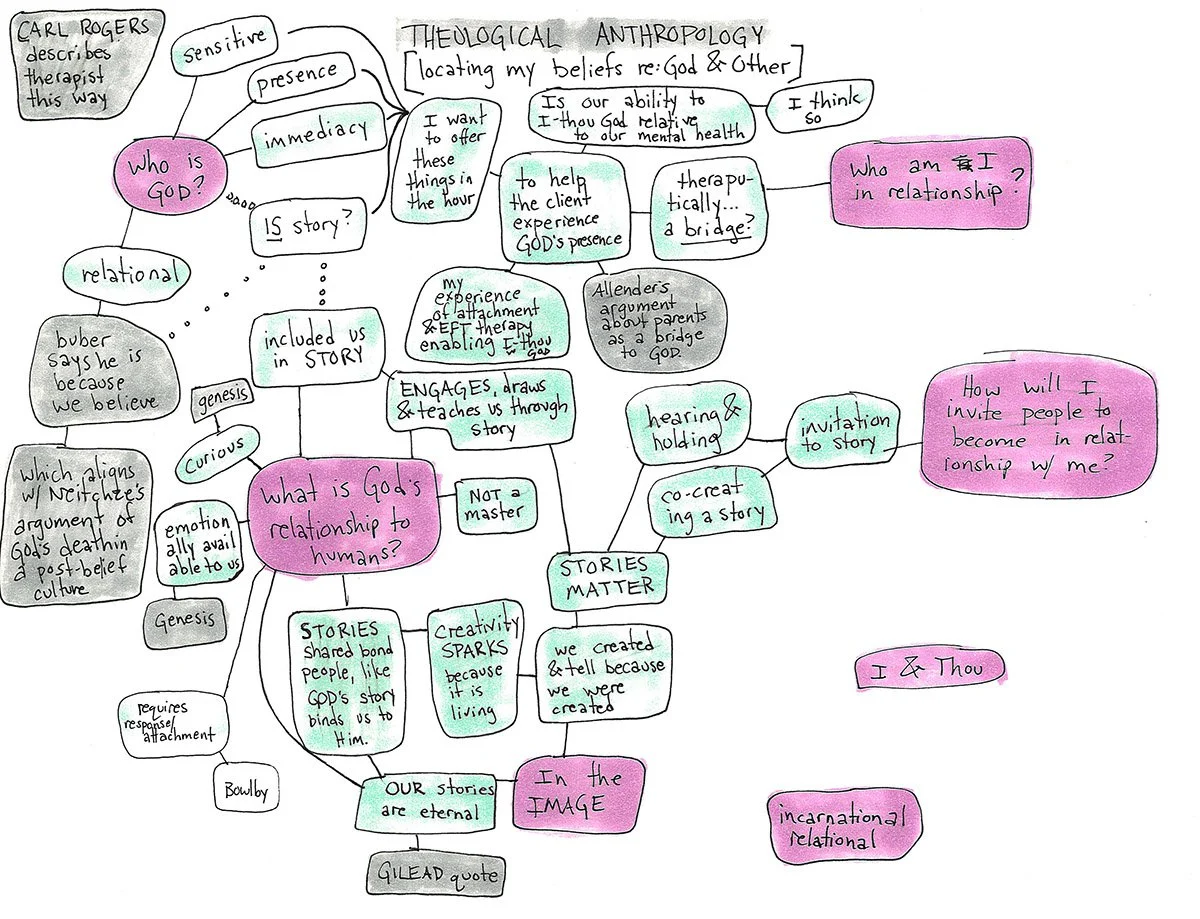 THEOLOGICAL ANTHROPOLOGY
[locating my beliefs re: God & Other]
CARL ROGERS
describes
therapist
this way
sensitive
presence
immediacy
WHO is
GOD?
IS story?
relational
buber
says he is
because
we believe
which aligns
w/ Neitchze's
argument of
God's death in
a post-belief
culture
I want
to offer
these
things in
the hour
Is our ability to
I-thou God relative
to our mental health
I think
so
to help
the client
experience
GOD's presence
therapu-
tically...
a bridge?
Who am I
in relationship?
my
experience
of attachment
& EFT therapy
enabling I-thou
w God
Allender's
argument
about parents
as a bridge
to GOD.
included us
in STORY
ENGAGES, draws
& teaches us through
story
genesis
curious
What is God's
relationship to
humans?
NOT a
master
emotion
ally avail
able to us
Genesis
requires
response/
attachment
Bowlby
STORIES
shared bond
people, like
GOD's story
binds us to
Him.
Creativity
SPARKS
because
it is
living
we created
& tell because
we were
created
STORIES
MATTER
hearing &
holding
co-creat
ing a story
invitation
to story
How will I
invite people to
become in relat-
ionship w/ me?
OUR stories
are eternal
In the
IMAGE
GILEAD quote
I & Thou
incarnational
relational